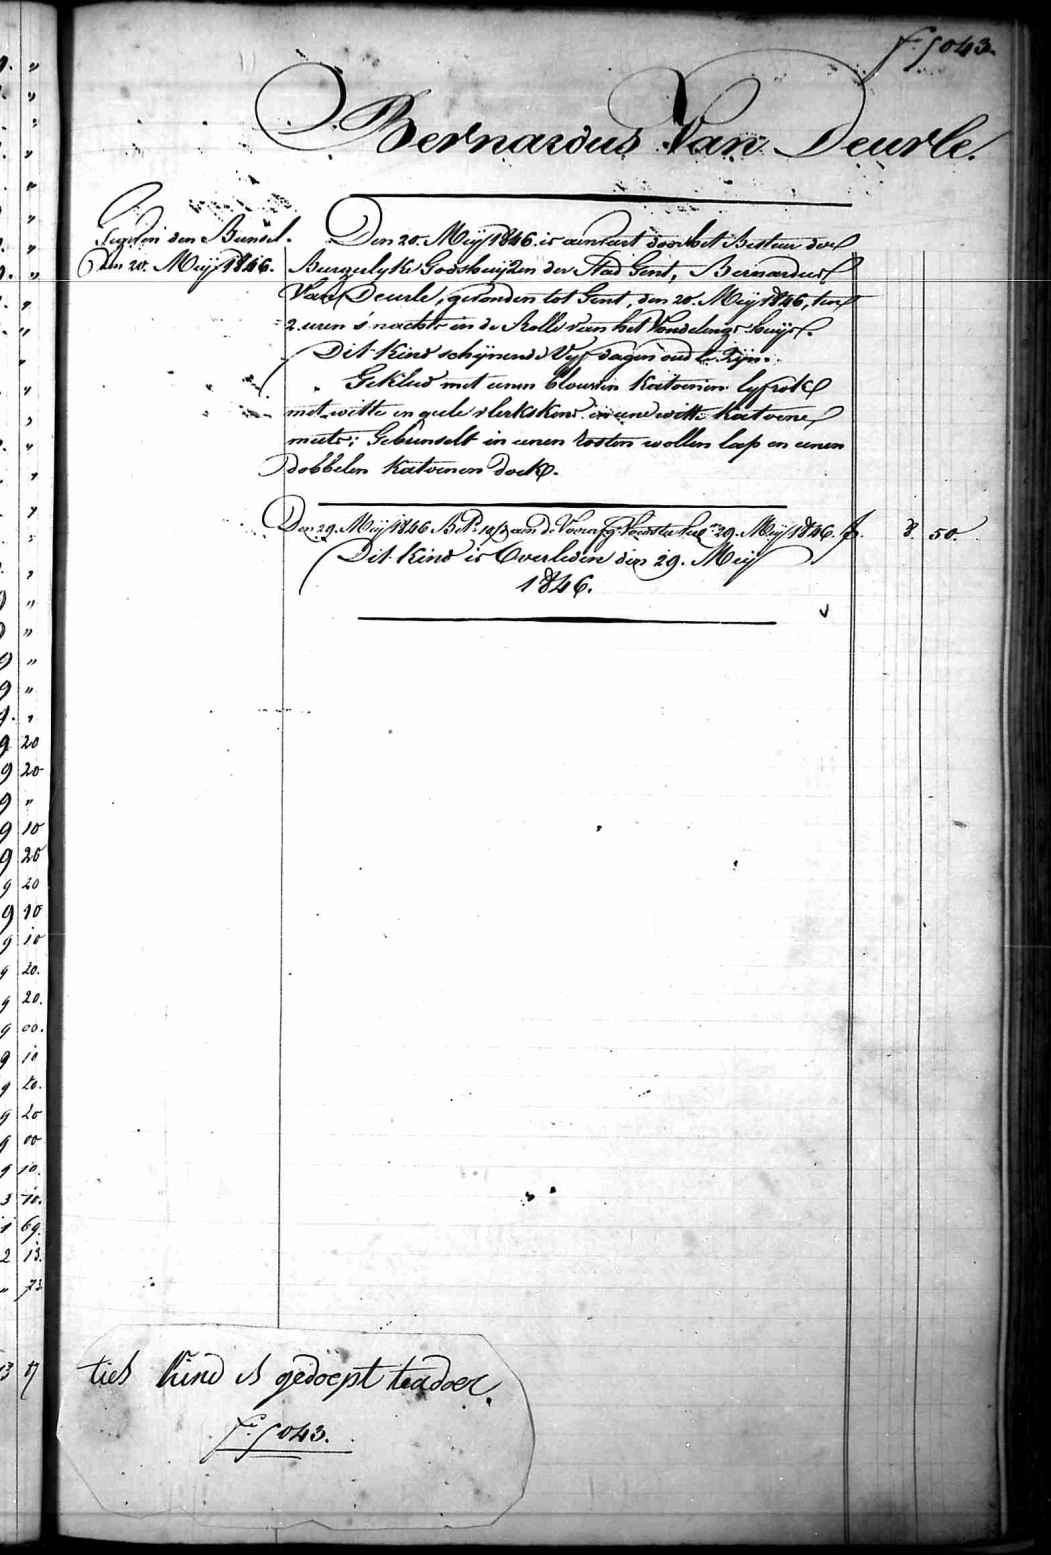 f° 5043.
Bernardus Van Deurle.
Gegeven den Bunsel.
Den 20. Meij 1846.
Den 20. Meij 1846 is aenveirt door het Bestuer der
Burgerlyke Godshuijzen der Stad Gent, Bernardus
Van Deurle, gevonden tot Gent, den 20. Meij 1846, ten
2 uren s'nachts in de Rolle van het Vondelings huijs.
Dit Kind schijnende Vyf dagen oud te Zijn.
Gekleed met eenen blauwen Katoenen lyfrok
met witte en geele vlerkskens en eene witte Katoene
muts; Gebunselt in eenen rosten wollen lap en eenen
dobbelen Katoenen doek.
Den 29. Meij 1846 Bet. aan de 29. Meij 1846. f. 8. 50.
Dit Kind is Overleden den 29. Meij
1846.
Kind is gedoept
f° 5043.
9 20
9 20
9 "
9 10
9 20
9 20
9 10
9 10
9 20.
9 20.
9 00.
9 10
9 20.
9 20
9 00
9 10.
3 70.
1 69.
2 13.
" 73